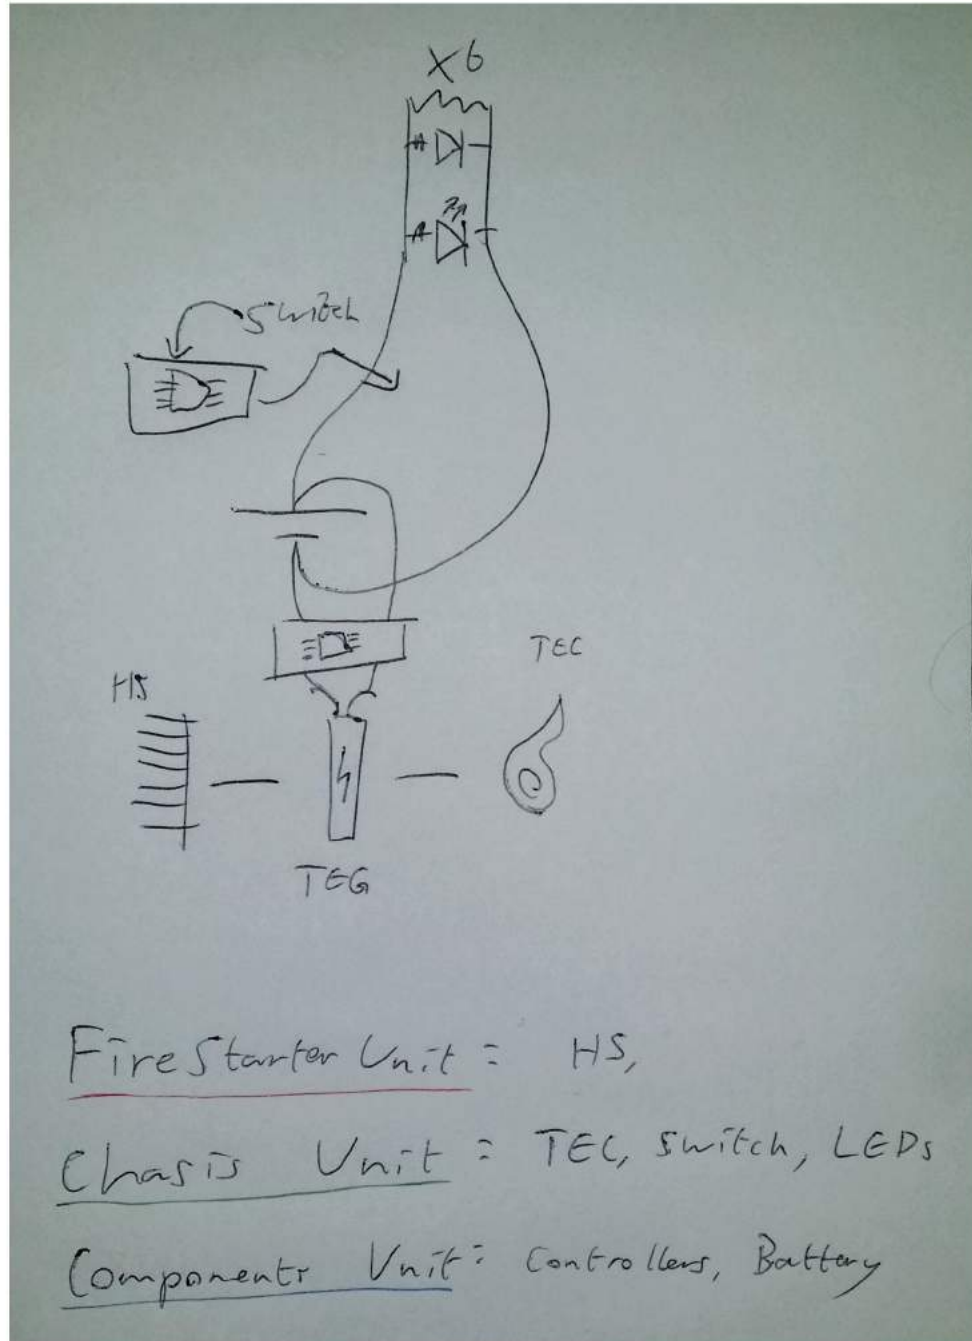 X6
Switch
HS
TEC
TEG
Fire Starter Unit: HS,
Chasis Unit: TEC, Switch, LEDs
Components Unit: Controllers, Battery